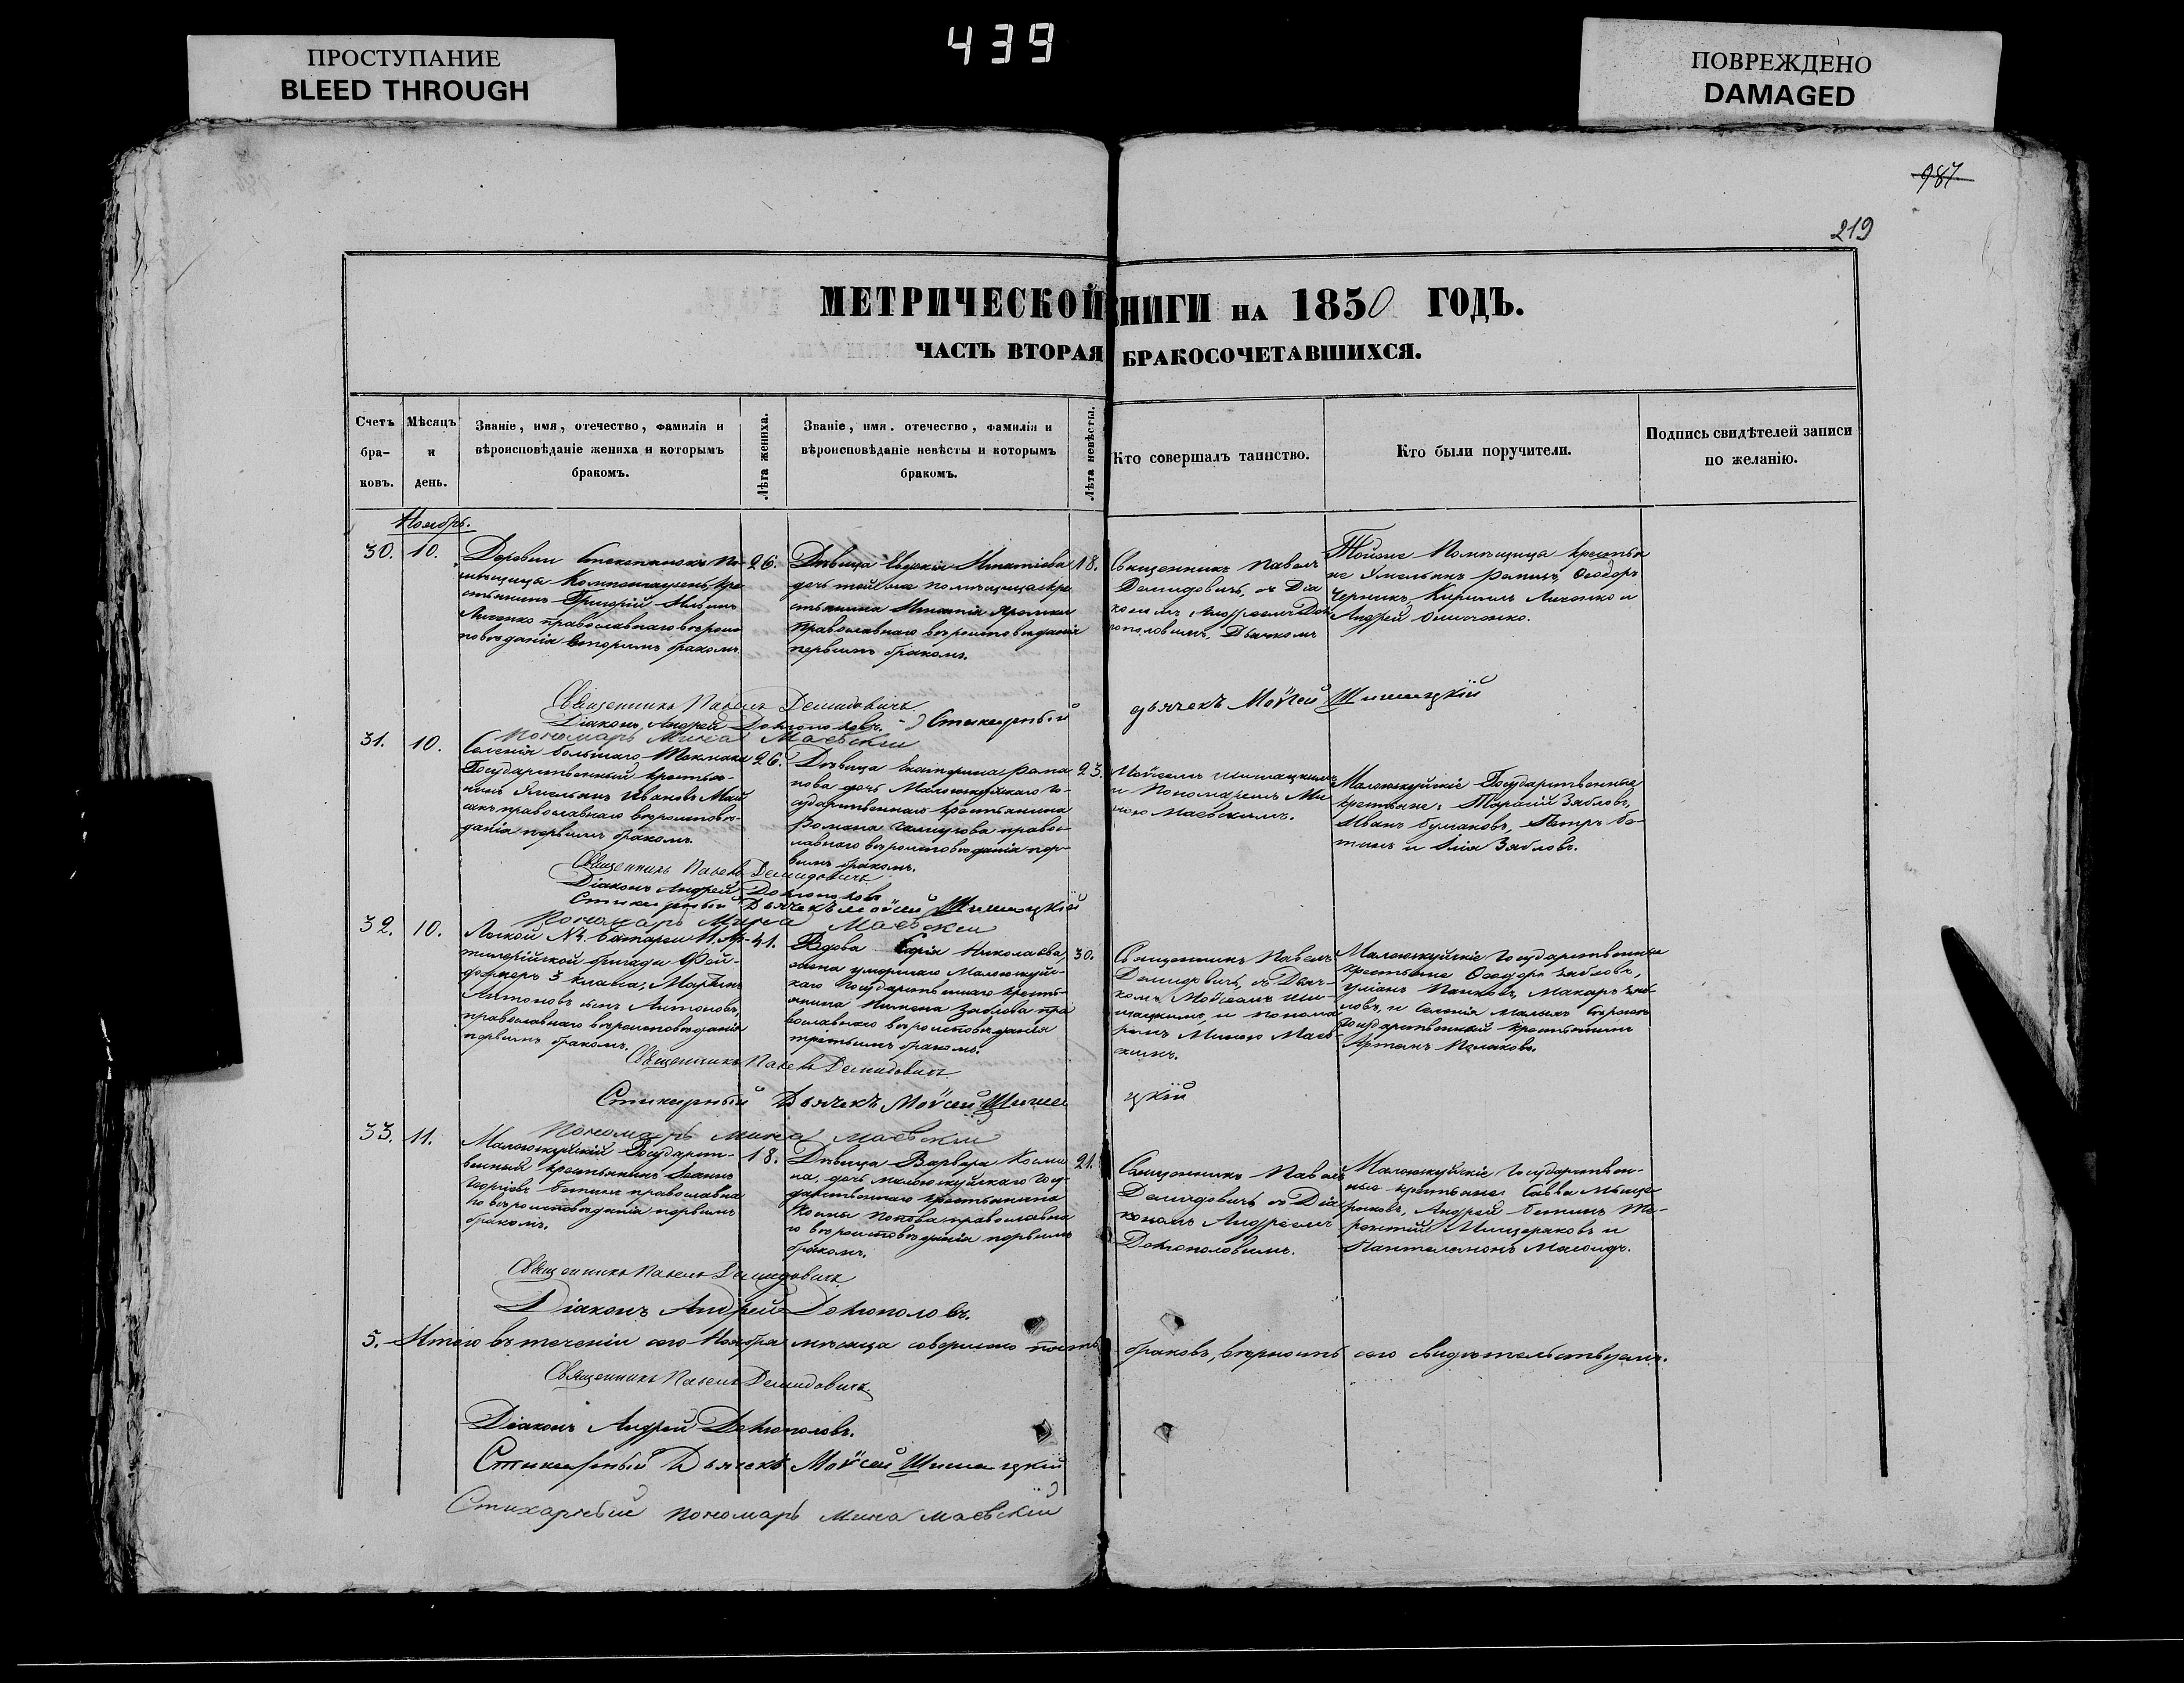 439
ПРОСТУПАНИЕ
BLEED THROUGH
ПОВРЕЖДЕНО
DAMAGED
987
219
МЕТРИЧЕСКОЙ КНИГИ НА 1850 ГОДЪ.
ЧАСТЬ ВТОРАЯ БРАКОСОЧЕТАВШИХСЯ.
Счетъ бра-ковъ.
Мѣсяцъ и день.
Званіе, имя, отечество, фамилія и
вѣроисповѣданіе жениха и которымъ
бракомъ.
Лѣта жениха.
Званіе, имя, отечество, фамилія и
вѣроисповѣданіе невѣсты и которымъ
бракомъ.
Лѣта невѣсты.
Кто совершалъ таинство.
Кто были поручители.
Подпись свидѣтелей записи
по желанію.
Ноябрь.
30. 10.
Деревни
помѣщицы кре-
стьянинъ Григорій
православнаго вѣроис-
повѣданія вторымъ бракомъ.
26.
Дѣвица Евдокія Игнатіева
дочь той же помѣщицы кре-
стьянина Игнатія
православнаго вѣроисповѣданія
первымъ бракомъ.
18.
Священникъ Павелъ
Демидовичъ, съ Діа-
кономъ Андреемъ
Дьячкомъ
Тойже помѣщицы крестья-
не Емельянъ Ѳеодоръ
Черникъ, Кириллъ и
Андрей
Священникъ Павелъ Демидовичъ
Діаконъ Андрей
Стихарный
дьячекъ Моѵсей Шишацкій
Пономарь Мина Маевскій
31. 10.
Селенія большаго Токмака
Государственный крестья-
нинъ Емельянъ Ивановъ Май
православнаго вѣроисповѣ-
данія первымъ бракомъ.
26.
Дѣвица Екатерина Рома-
нова дочь Малоюкуйскаго Го-
сударственнаго крестьянина
Романа правос-
лавнаго вѣроисповѣданія пер-
вымъ бракомъ.
23.
Моѵсеемъ Шишацкимъ
и Пономаремъ Ми-
ною Маевскимъ.
Малоюкуйскіе Государственные
крестьяне: Зябловъ,
Иванъ Петръ Бе-
тинъ и Илія Зябловъ.
Священникъ Павелъ Демидовичъ
Діаконъ Андрей
Стихарный Дьячекъ Моѵсей Шишацкій
Пономарь Мина Маевскій
32. 10.
Легкой №4. батареи 11. Ар-
тиллерійской бригады Фей-
3 класса, Мартинъ
Антоновъ сынъ Антоновъ,
православнаго вѣроисповѣданія
первымъ бракомъ.
41.
Вдова Николаева,
жена умершаго Малоюкуйс-
каго Государственнаго кресть-
янина Зяблова пра-
вославнаго вѣроисповѣданія
третьимъ бракомъ.
30.
Священникъ Павелъ
Демидовичъ, съ Дьяч-
комъ Моѵсеемъ Ши-
шацкимъ, и понома-
ремъ Миною Маев-
скимъ.
Малоюкуйскіе Государственные
крестьяне Ѳеодоръ Зябловъ,
Макаръ Зяб-
ловъ, и Селенія Малыхъ
Государственный крестьянинъ
Поляковъ.
Священникъ Павелъ Демидовичъ
Стихарный Дьячекъ Моѵсей Шишацкій
Пономарь Мина Маевскій
33. 11.
Малоюкуйскій Государст-
венный крестьянинъ Іоаннъ
Бетинъ православна-
го вѣроисповѣданія первымъ
бракомъ.
18.
Дѣвица Варвара Косми-
на, дочь малоюкуйскаго Госу-
дарственнаго крестьянина
Космы Попова православна-
го вѣроисповѣданія первымъ
бракомъ.
21.
Священникъ Павелъ
Демидовичъ съ Діа-
кономъ Андреемъ
Малоюкуйскіе Государствен-
ные крестьяне: Савва Мище-
ряковъ, Андрей Бетинъ, Те-
рентій Мищеряковъ и
Пантелеймонъ
Священникъ Павелъ Демидовичъ
Діаконъ Андрей
5. Итого въ теченіи сего Ноября мѣсяца совершено пять браковъ, вѣрность сего свидѣтельствуемъ.
Священникъ Павелъ Демидовичъ
Діаконъ Андрей
Стихарный Дьячекъ Моѵсей Шишацкій
Стихарный пономарь Мина Маевскій